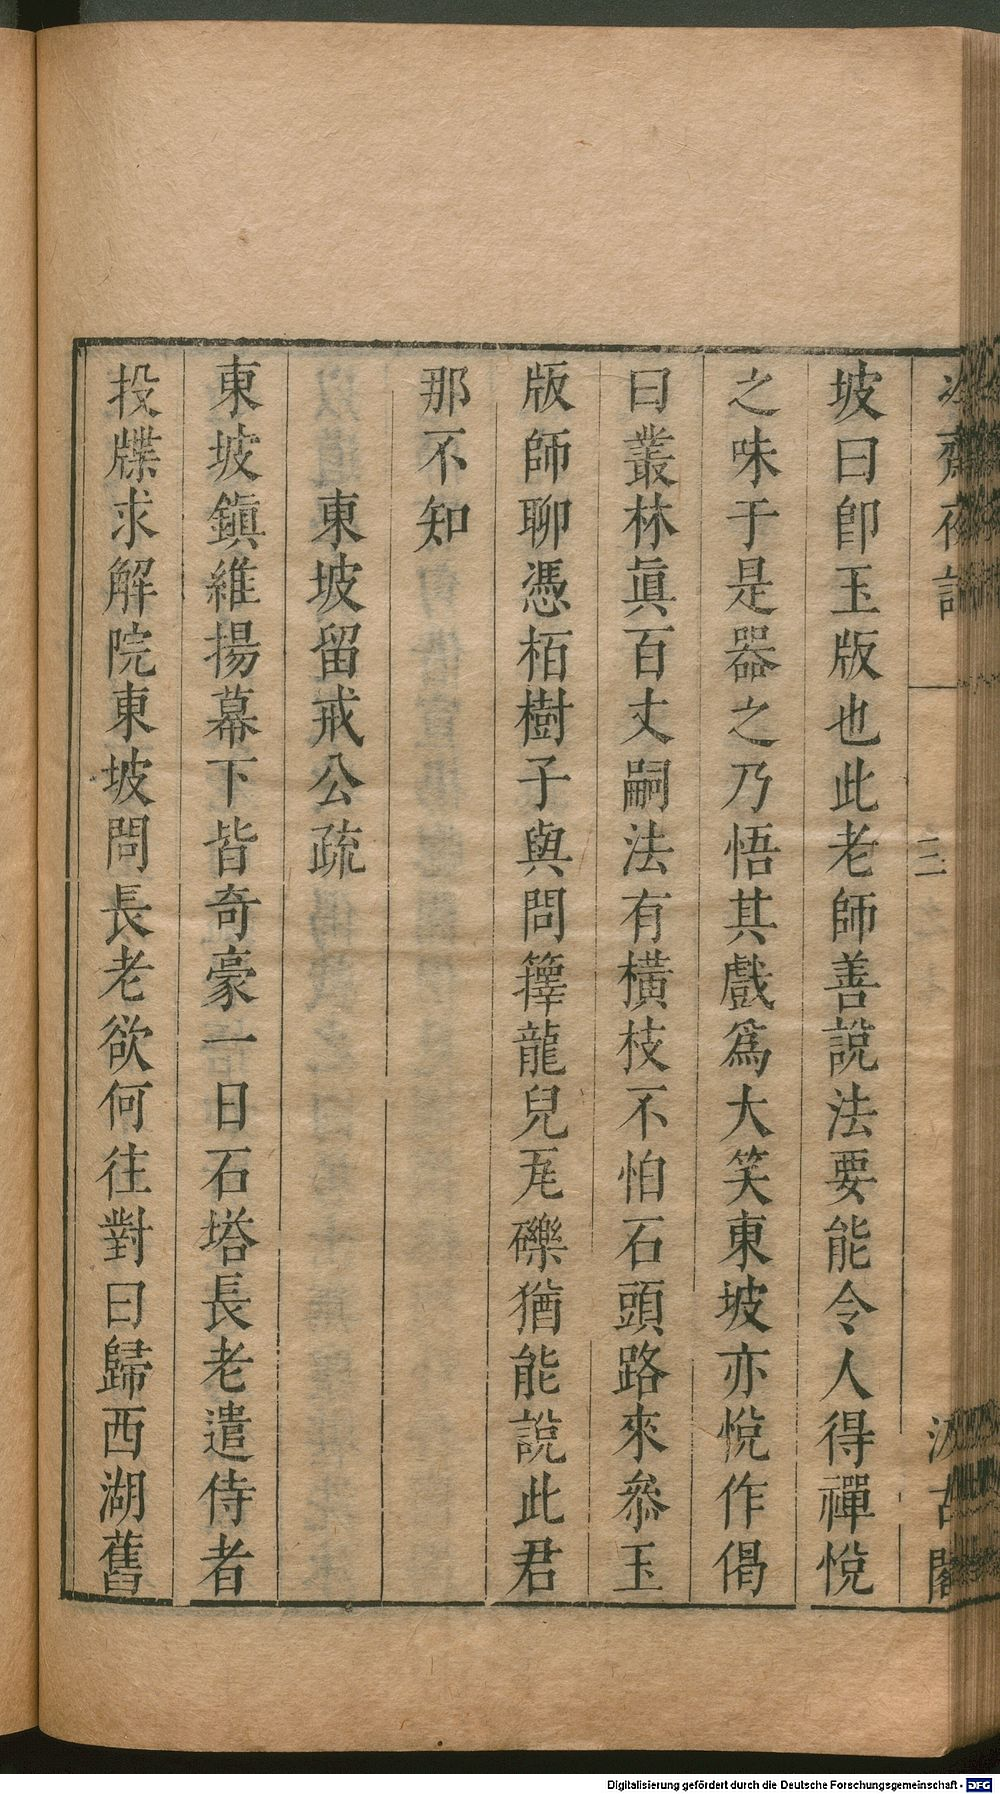 冷齋夜話
三
汲古閣
坡曰卽玉版也此老師善說法要能令人得禪悅
之味于是器之乃悟其戲爲大笑東坡亦悅作偈
曰叢林眞百丈嗣法有橫枝不怕石頭路來叅玉
版師聊憑栢樹子與問籜龍兒瓦礫猶能說此君
那不知
東坡留戒公疏
東坡鎮維揚幕下皆奇豪一日石塔長老遣侍者
投牒求解院東坡問長老欲何往對曰歸西湖舊
Digitalisierung gefördert durch die Deutsche Forschungsgemeinschaft - DFG